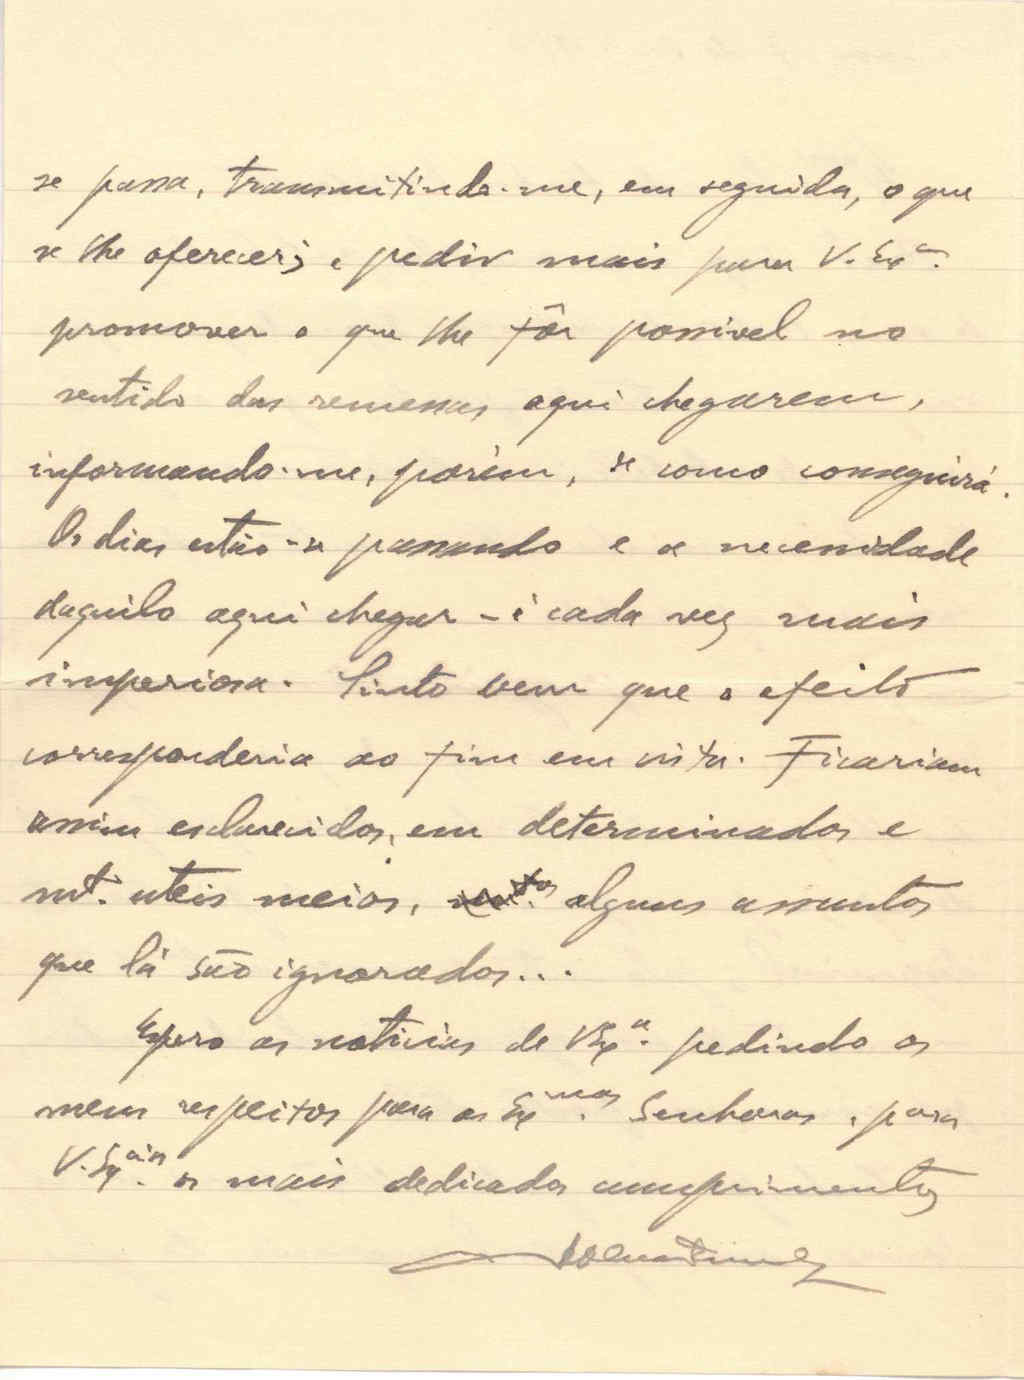 se passa, transmitindo-me, em seguida, o que
se lhe oferecer; e pedir mais para V. Exª.
promover o que lhe fôr possivel no
sentido das remessas aqui chegarem,
informando-me, porém, se como conseguirá.
Os dias estão-se passando e a necessidade
daquilo aqui chegar - é cada vez mais
imperiosa. Sinto bem que o efeito
corresponderia ao fim em vista. Ficariam
assim esclarecidos, em determinados e
mtº. uteis meios, alguns assuntos
que lá são ignorados...
Espero as noticias de V Exª. pedindo os
meus respeitos para as Exmas. Senhoras e para
V. Exªias. os mais dedicados cumprimentos